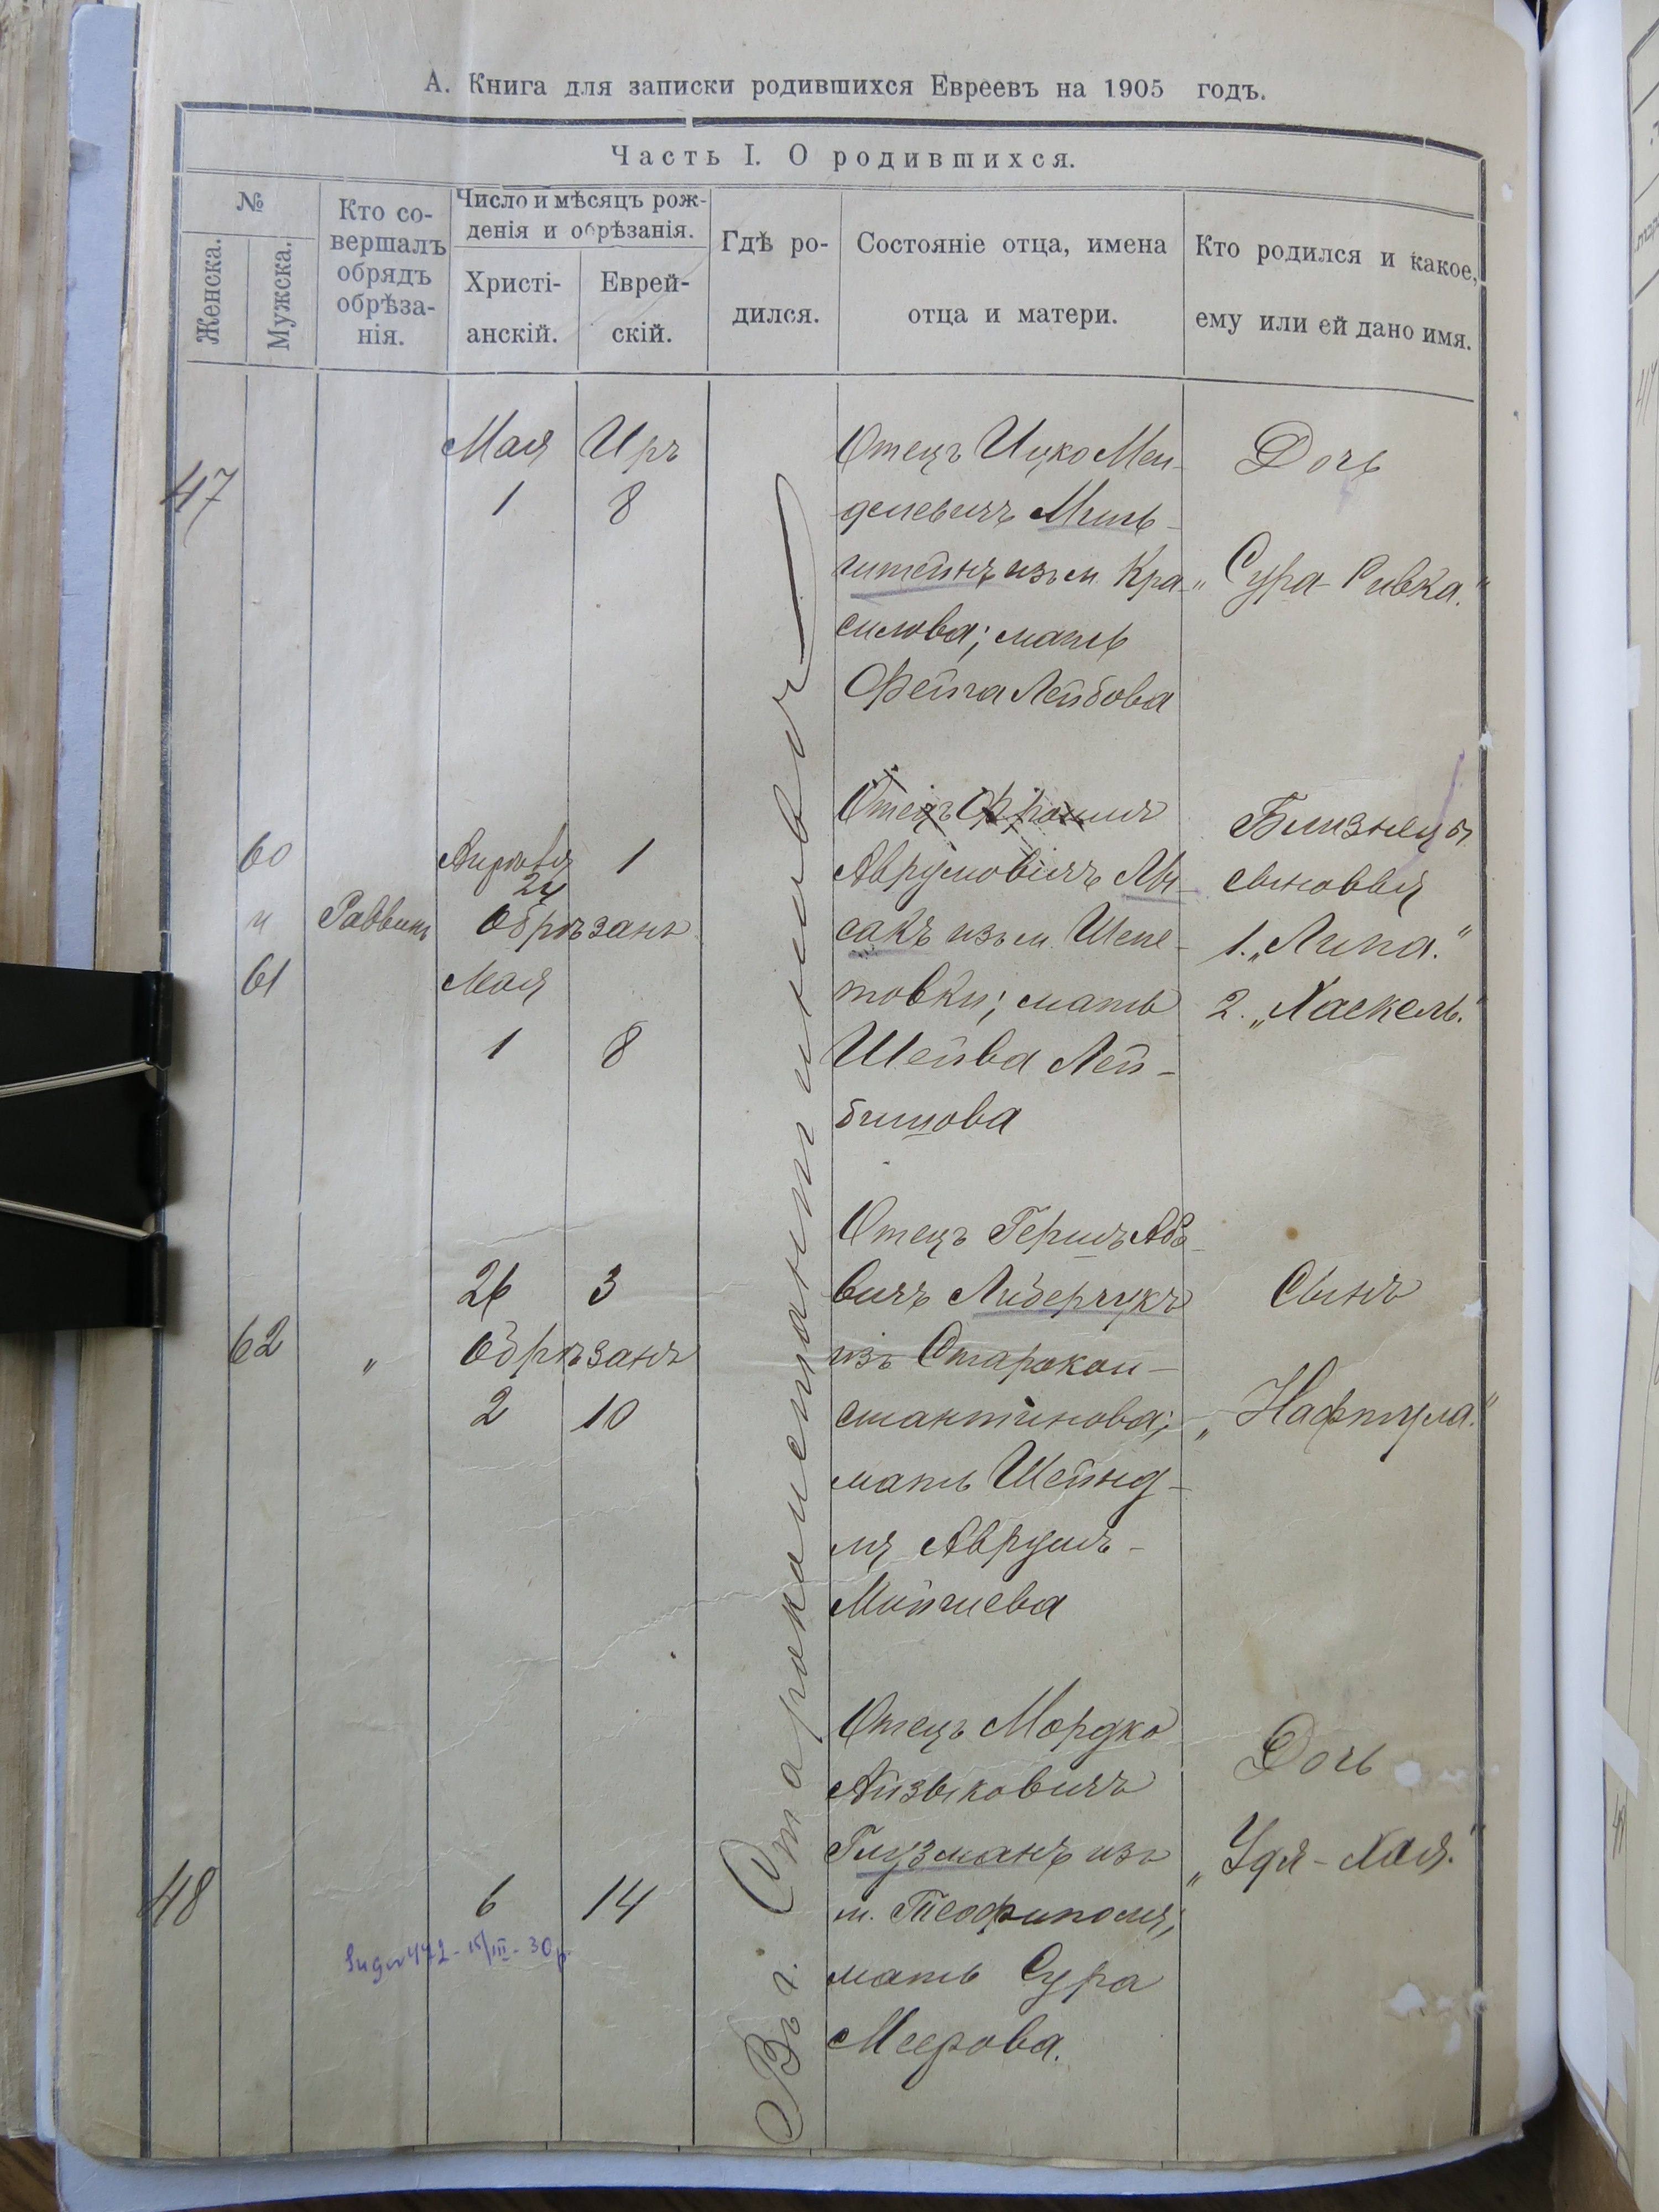 А. Книга для записки родившихся Евреевъ на 1905 годъ.
Часть I. О родившихся.
№
Женска.
Мужска.
Кто со-
вершалъ
обрядъ
обрѣза-
нія.
Число и мѣсяцъ рож-
денія и обрѣзанія.
Христі-
анскій.
Еврей-
скій.
Гдѣ ро-
дился.
Состояніе отца, имена
отца и матери.
Кто родился и какое,
ему или ей дано имя.
Въ г. Староконстантиновѣ
47
Мая Иръ
1 8
Отецъ Ицко Мен-
делевичъ Миль-
штейнъ изъ м. Кра-
силова; мать
Фейга Лейбова
Дочь
„Сура-Ривка."
60
и
61
Раввинъ
Апрѣля 1
24
Обрѣзанъ
Мая
1 8
Отецъ Фроимъ
Аврумовичъ Лы-
сакъ изъ м. Шепе-
товки; мать
Шейва Лей-
бишова
Близнецы
сыновья
1. „Липа."
2. „Хаскель."
62
„
26 3
Обрѣзанъ
2 10
Отецъ Гершъ Або-
вичъ Лидерчукъ
изъ Старокон-
стантинова;
мать Шейнд-
ля Аврумъ-
Мойшева
Сынъ
„Нафтула."
48
6 14
Отецъ Мордко
Айзыковичъ
Глузманъ изъ
м. Теофиполя;
мать Сура
Меерова.
Дочь
„Удя-Хая."
442 - 15/III - 30 р.